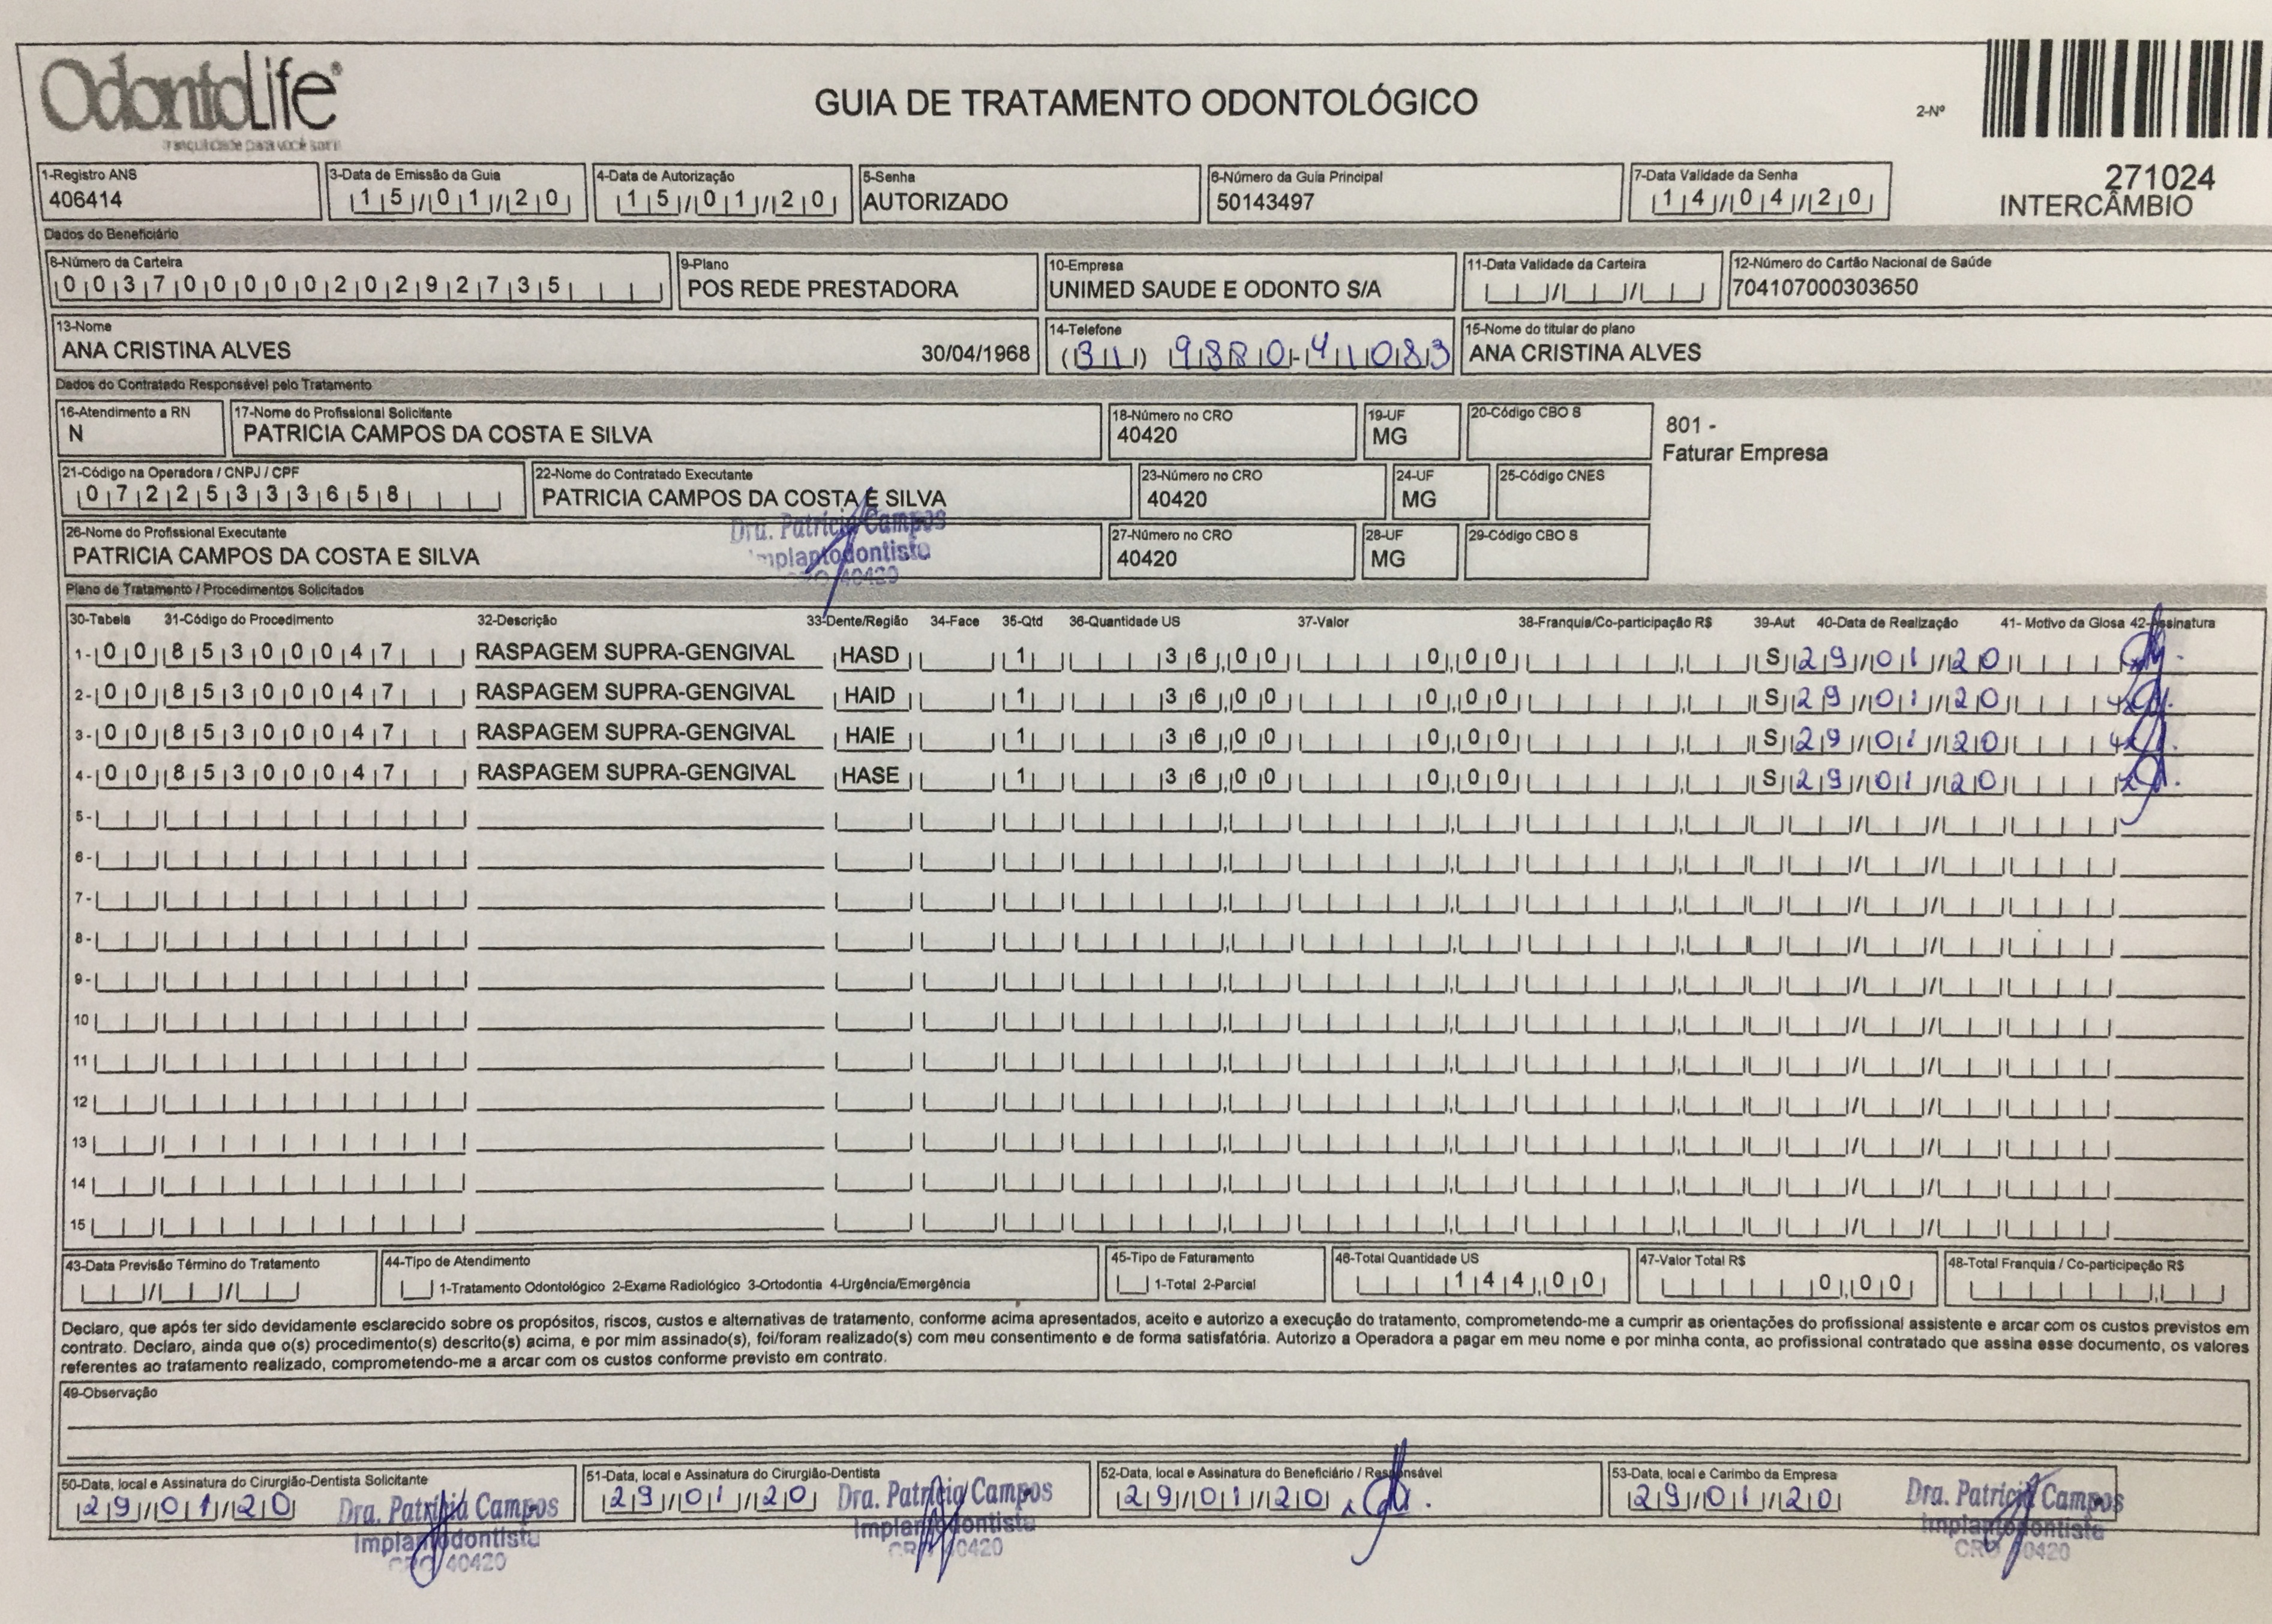 OdontoLife®
Tranquilidade para você sorrir
GUIA DE TRATAMENTO ODONTOLÓGICO
2-Nº
271024
INTERCÂMBIO
1-Registro ANS
406414
3-Data de Emissão da Guia
15/01/20
4-Data de Autorização
15/01/20
5-Senha
AUTORIZADO
6-Número da Guia Principal
50143497
7-Data Validade da Senha
14/04/20
Dados do Beneficiário
8-Número da Carteira
00370000020292735
9-Plano
POS REDE PRESTADORA
10-Empresa
UNIMED SAUDE E ODONTO S/A
11-Data Validade da Carteira
12-Número do Cartão Nacional de Saúde
704107000303650
13-Nome
ANA CRISTINA ALVES 30/04/1968
14-Telefone
(31) 9880-41083
15-Nome do titular do plano
ANA CRISTINA ALVES
Dados do Contratado Responsável pelo Tratamento
16-Atendimento a RN
N
17-Nome do Profissional Solicitante
PATRICIA CAMPOS DA COSTA E SILVA
18-Número no CRO
40420
19-UF
MG
20-Código CBO S
801 -
Faturar Empresa
21-Código na Operadora / CNPJ / CPF
07225333658
22-Nome do Contratado Executante
PATRICIA CAMPOS DA COSTA E SILVA
23-Número no CRO
40420
24-UF
MG
25-Código CNES
26-Nome do Profissional Executante
PATRICIA CAMPOS DA COSTA E SILVA
Dra. Patrícia Campos
Implantodontista
CRO 40420
27-Número no CRO
40420
28-UF
MG
29-Código CBO S
Plano de Tratamento / Procedimentos Solicitados
30-Tabela 31-Código do Procedimento 32-Descrição 33-Dente/Região 34-Face 35-Qtd 36-Quantidade US 37-Valor 38-Franquia/Co-participação R$ 39-Aut 40-Data de Realização 41- Motivo da Glosa 42-Assinatura
1- 00 85300047 RASPAGEM SUPRA-GENGIVAL HASD 1 36,00 0,00 S 29/01/20
2- 00 85300047 RASPAGEM SUPRA-GENGIVAL HAID 1 36,00 0,00 S 29/01/20
3- 00 85300047 RASPAGEM SUPRA-GENGIVAL HAIE 1 36,00 0,00 S 29/01/20
4- 00 85300047 RASPAGEM SUPRA-GENGIVAL HASE 1 36,00 0,00 S 29/01/20
5-
6-
7-
8-
9-
10
11
12
13
14
15
43-Data Previsão Término do Tratamento
44-Tipo de Atendimento
1-Tratamento Odontológico 2-Exame Radiológico 3-Ortodontia 4-Urgência/Emergência
45-Tipo de Faturamento
1-Total 2-Parcial
46-Total Quantidade US
144,00
47-Valor Total R$
0,00
48-Total Franquia / Co-participação R$
Declaro, que após ter sido devidamente esclarecido sobre os propósitos, riscos, custos e alternativas de tratamento, conforme acima apresentados, aceito e autorizo a execução do tratamento, comprometendo-me a cumprir as orientações do profissional assistente e arcar com os custos previstos em
contrato. Declaro, ainda que o(s) procedimento(s) descrito(s) acima, e por mim assinado(s), foi/foram realizado(s) com meu consentimento e de forma satisfatória. Autorizo a Operadora a pagar em meu nome e por minha conta, ao profissional contratado que assina esse documento, os valores
referentes ao tratamento realizado, comprometendo-me a arcar com os custos conforme previsto em contrato.
49-Observação
50-Data, local e Assinatura do Cirurgião-Dentista Solicitante
29/01/20
Dra. Patrícia Campos
Implantodontista
CRO 40420
51-Data, local e Assinatura do Cirurgião-Dentista
29/01/20
Dra. Patrícia Campos
Implantodontista
CRO 40420
52-Data, local e Assinatura do Beneficiário / Responsável
29/01/20
53-Data, local e Carimbo da Empresa
29/01/20
Dra. Patrícia Campos
Implantodontista
CRO 40420